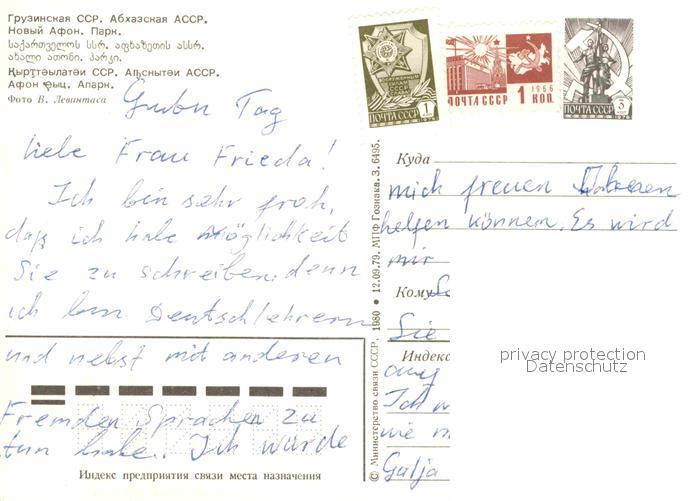 Грузинская ССР. Абхазская АССР.
Новый Афон. Парк.
საქართველოს სსრ. აფხაზეთის ასსრ.
ახალი ათონი. პარკი.
Қырҭтәылатәи ССР. Аҧснытәи АССР.
Афон Ҿыц. Апарк.
Фото В. Левинтаса
Guten Tag
liebe Frau Frieda!
Ich bin sehr froh,
daß ich habe Möglichkeit
Sie zu schreiben, denn
ich bin Deutschlehrerin
und nebst mit anderen
Fremden Sprachen zu
tun habe. Ich würde
Индекс предприятия связи места назначения
© Министерство связи СССР. 1980 • 12.09.79. МПФ Гознака. З. 6495.
ВООРУЖЕННЫМ СИЛАМ СССР
1
ПОЧТА СССР 1976
1966
ПОЧТА СССР 1 КОП.
ПОЧТА СССР 3
1976
Куда
mich freuen
helfen können. Es wird
mir
Кому
Sie
Индекс
Ich w
wie m
Galja
privacy protection
Datenschutz